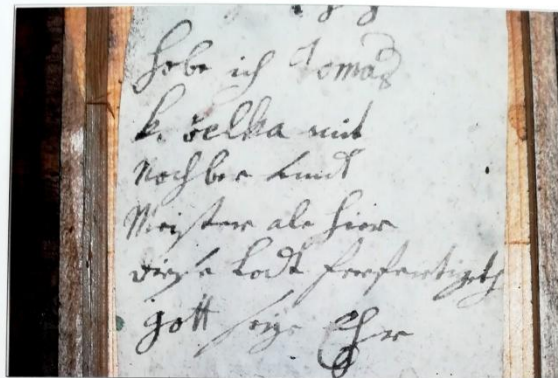 habe ich Tomaß
k. velka mit
Nochber undt
Meister ale hier
diese Ladt ferfertigeth
gott seige Ehr